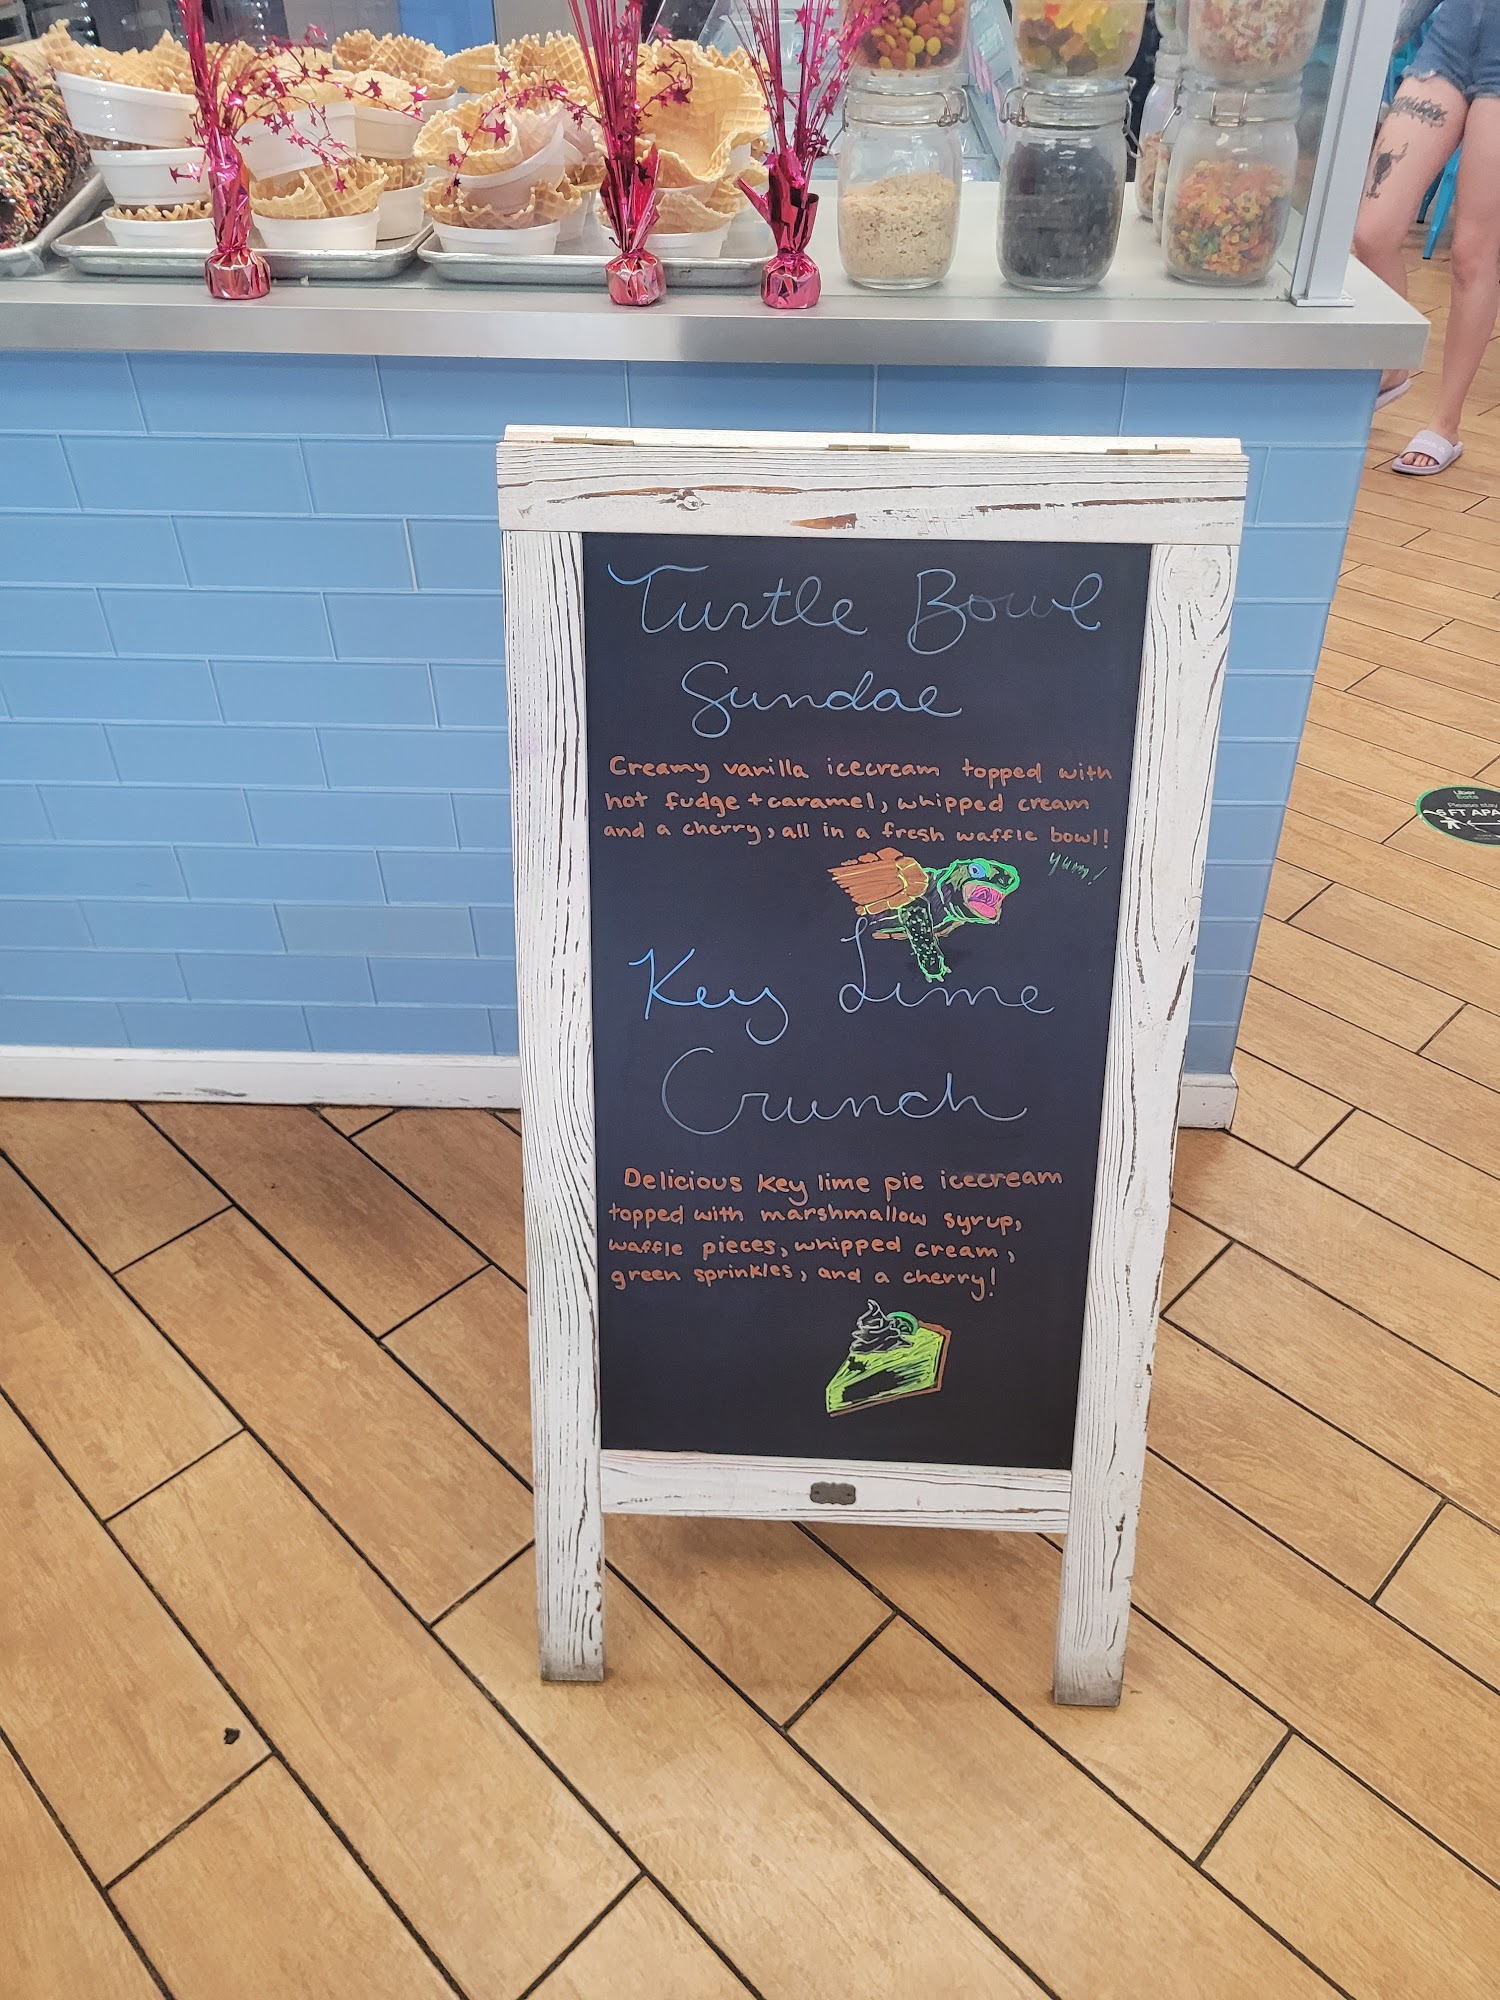 Turtle Bowl
Sundae
Creamy vanilla icecream topped with
hot fudge + caramel, whipped cream
and a cherry, all in a fresh waffle bowl!
Yum!
Key Lime
Crunch
Delicious Key lime pie icecream
topped with marshmallow syrup,
waffle pieces, whipped cream,
green sprinkles, and a cherry!
Uber
Eats
Please stay
6 FT APA